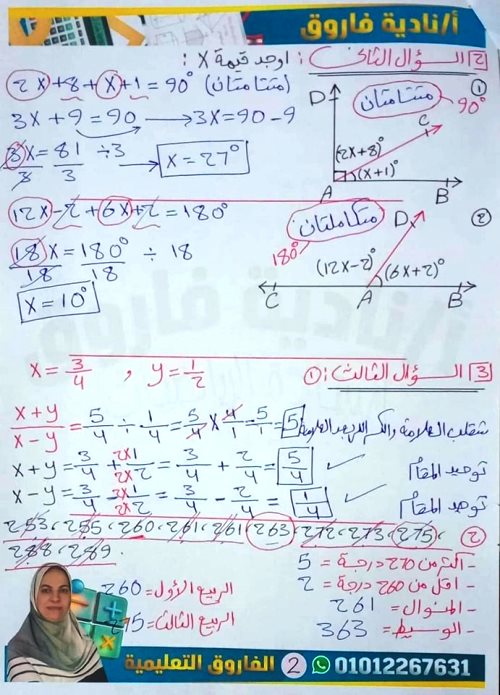 أ/نادية فاروق
2 السؤال الثانى: اوجد قيمة X:
①
2X+8+X+1=90° (متتامتان)
3X+9=90 → 3X=90-9
3X/3=81/3 ÷3 → X=27°
متتامتان 90°
D
C
(2X+8)°
(X+1)°
A
B
②
12X-2+6X+2=180°
18X/18=180°/18 ÷ 18
X=10°
متكاملتان
180°
D
(12X-2)°
(6X+2)°
C
A
B
3 السؤال الثالث: ①
X=3/4 , y=1/2
X+y/X-y=5/4÷1/4=5/4×4/1=5/1=5
X+y=3/4+1/2 ×2/×2=3/4+2/4=5/4 ✓ توحيد المقام
X-y=3/4-1/2 ×2/×2=3/4-2/4=1/4 ✓ توحيد المقام
②
253، 255، 260، 261، 261، 263، 272، 273، 275،
288، 289.
- أكثر من 270 درجة = 5
- اقل من 260 درجة = 2
- المنوال = 261
- الوسيط = 363
الربيع الأول = 260
الربيع الثالث = 275
الفاروق التعليمية 2 01012267631